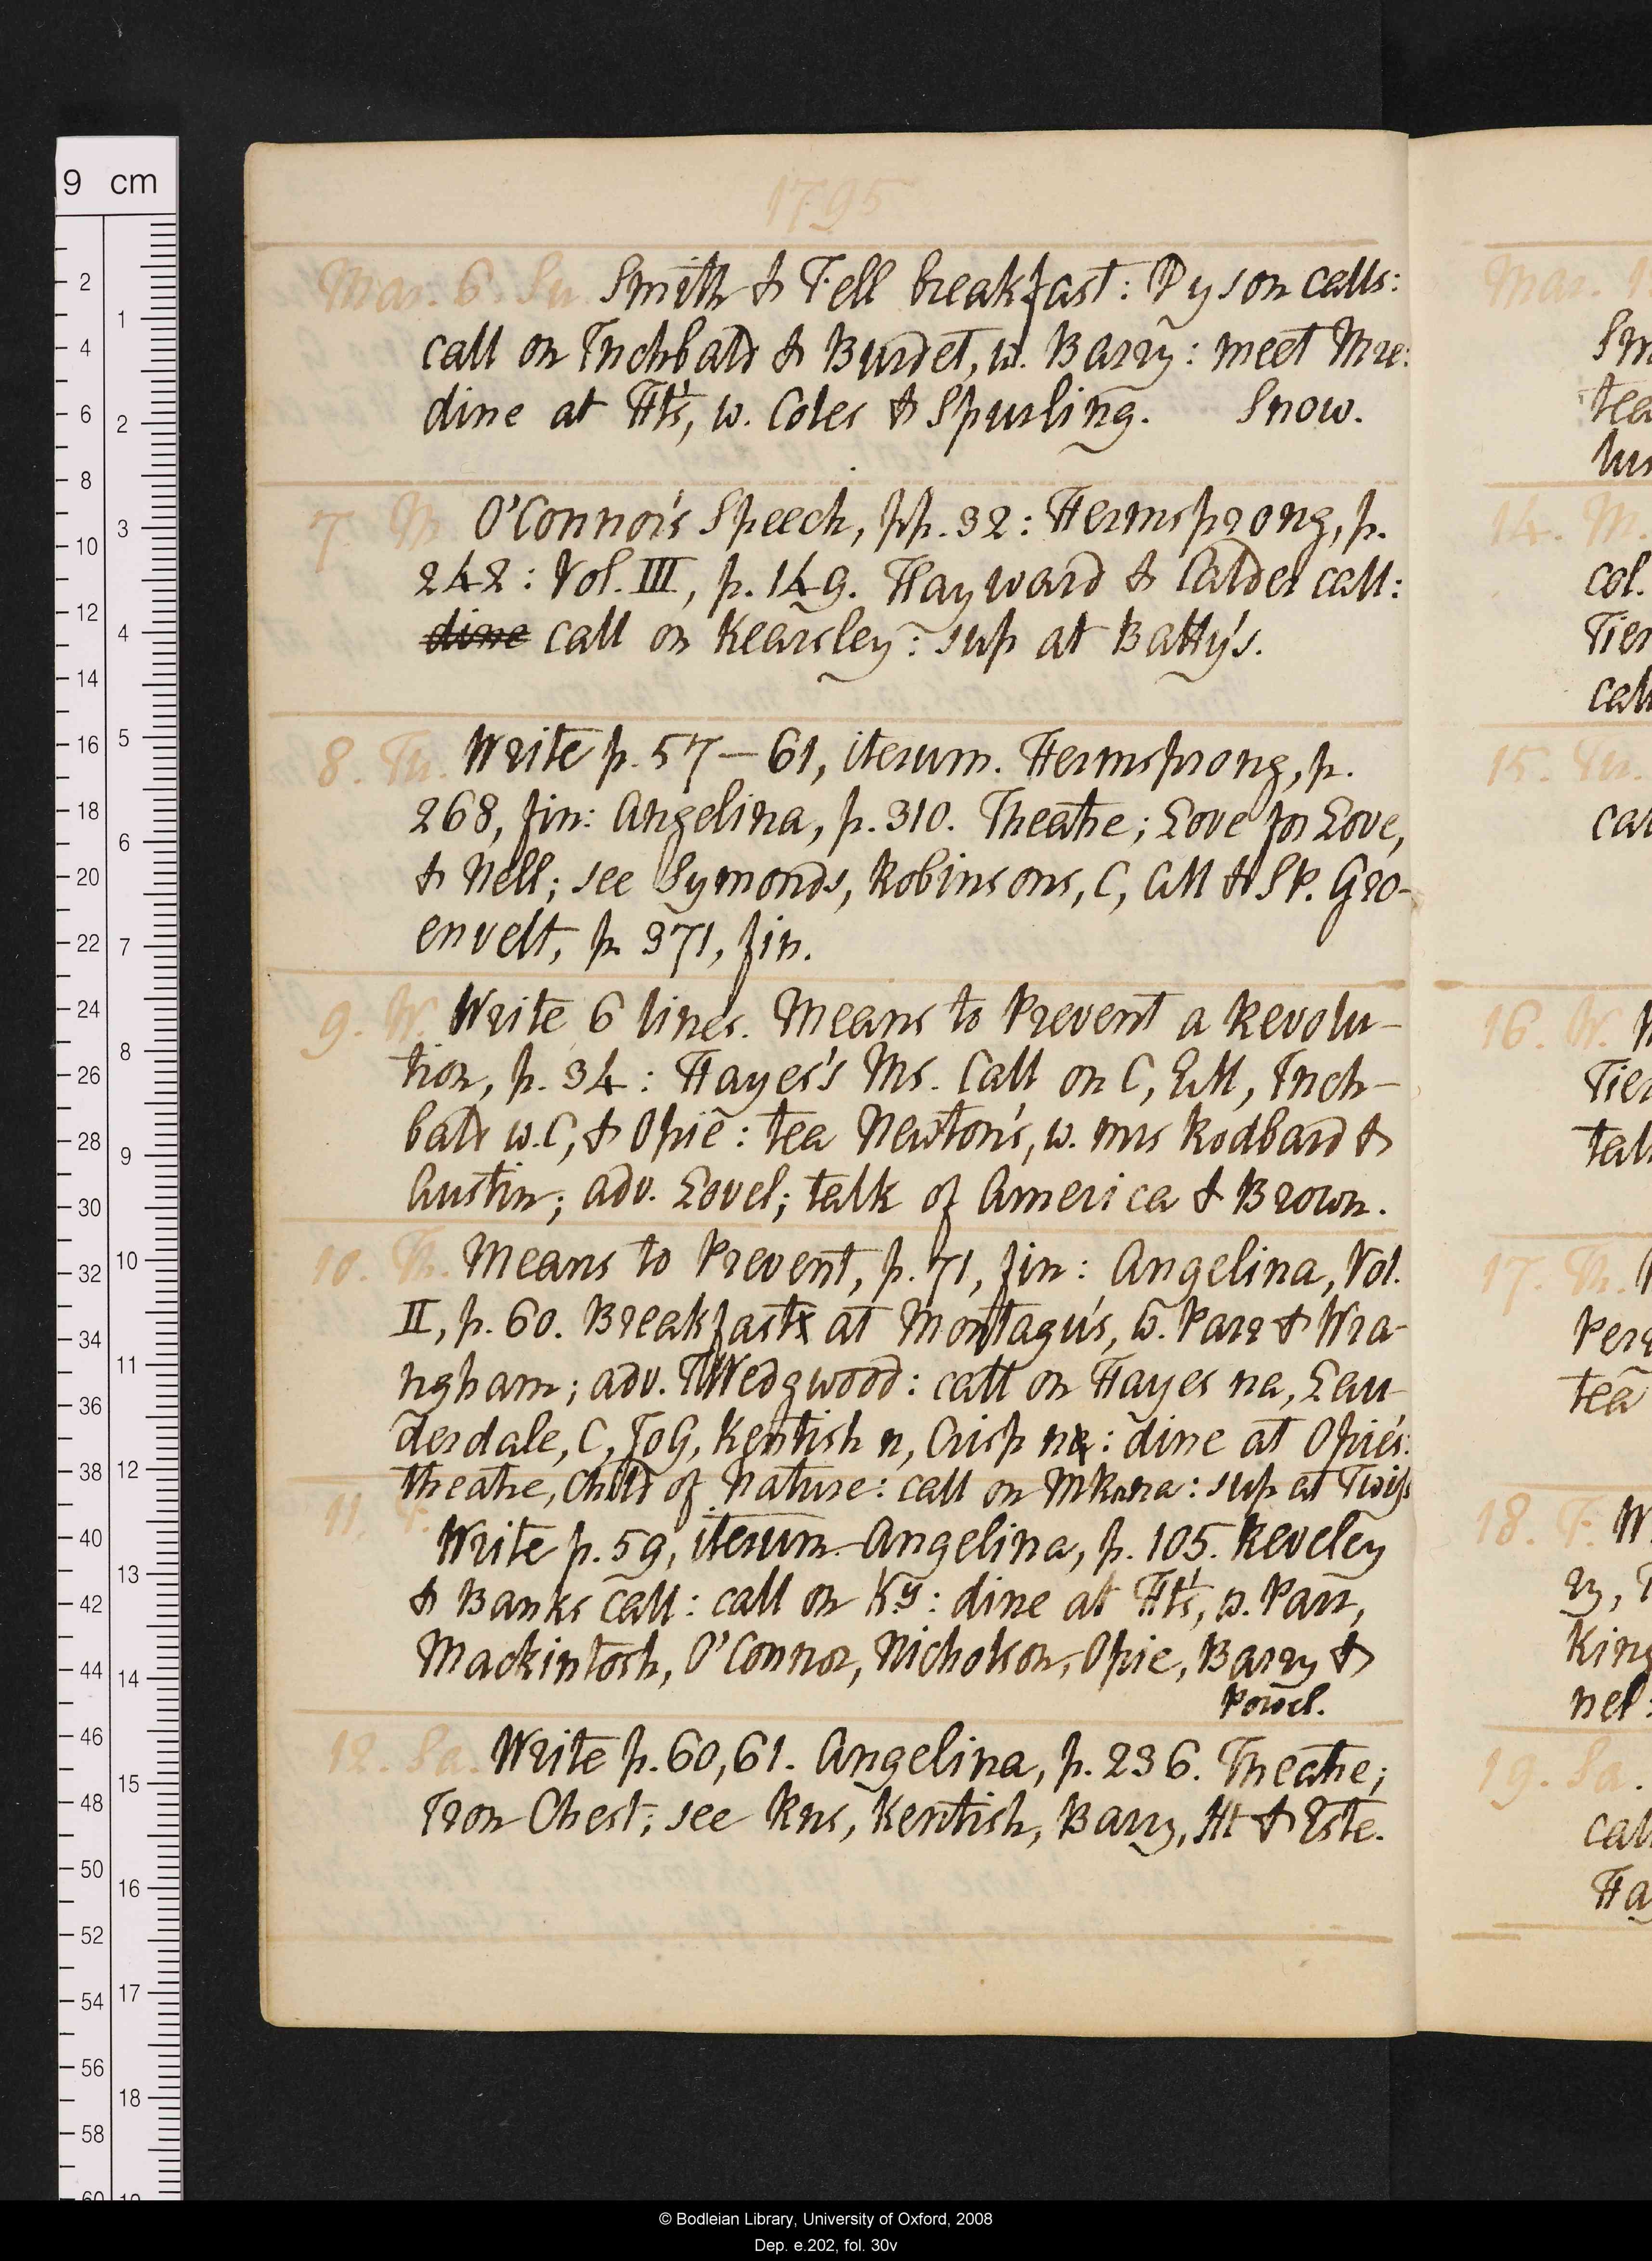 1795
Mar. 6. Su. Smith & Fell breakfast: Dyson calls:
call on Inchbald & Burdet, w. Barry: meet Mre:
dine at Ht's, w. Coles & Spurling. Snow.
7. M. O'Connor's Speech, pp. 32: Hermsprong, p.
242: Vol. III, p. 149. Hayward & Calder call:
dine call on Kearsley: sup at Batty's.
8. Tu. Write p. 57–61, iterum. Hermsprong, p.
268, fin: Angelina, p. 310. Theatre; Love for Love,
& Nell; see Symonds, Robinsons, C, AA & Sk. Gro-
envelt, p. 371, fin.
9. W. Write 6 lines. Means to Prevent a Revolu-
tion, p. 34: Hayes's Ms. Call on C, EM, Inch-
bald w. C, & Opie: tea Newton's, w. mrs Rodbard &
Austin; adv. Lovel; talk of America & Brown.
10. Th. Means to Prevent, p. 71, fin: Angelina, Vol.
II, p. 60. Breakfast at Montagu's, w. Parr & Wra-
ngham; adv. TWedgwood: call on Hayes na, Lau-
derdale, C, JoG, Kentish n, Crisp n: dine at Opie's:
theatre, Child of Nature: call on MRnna: sup at Twiss
11. F.
Write p. 59, iterum. Angelina, p. 105. Reveley
& Banks call: call on Ky: dine at Ht's, w. Parr,
Mackintosh, O'Connor, Nicholson, Opie, Barry &
Powel.
12. Sa. Write p. 60, 61. Angelina, p. 236. Theatre;
Iron Chest; see Rns, Kentish, Barry, Ht & Este.
Mar. 1
Sm
tea
14. M.
col.
Tier
call
15. Tu.
cal
16. W.
Tier
talk
17. Th.
Per
tea
18. F. W
ry,
King
nel:
19. Sa.
call
Ha
9 cm
2
4
6
8
10
12
14
16
18
20
22
24
26
28
30
32
34
36
38
40
42
44
46
48
50
52
54
56
58
60
1
2
3
4
5
6
7
8
9
10
11
12
13
14
15
16
17
18
© Bodleian Library, University of Oxford, 2008
Dep. e.202, fol. 30v